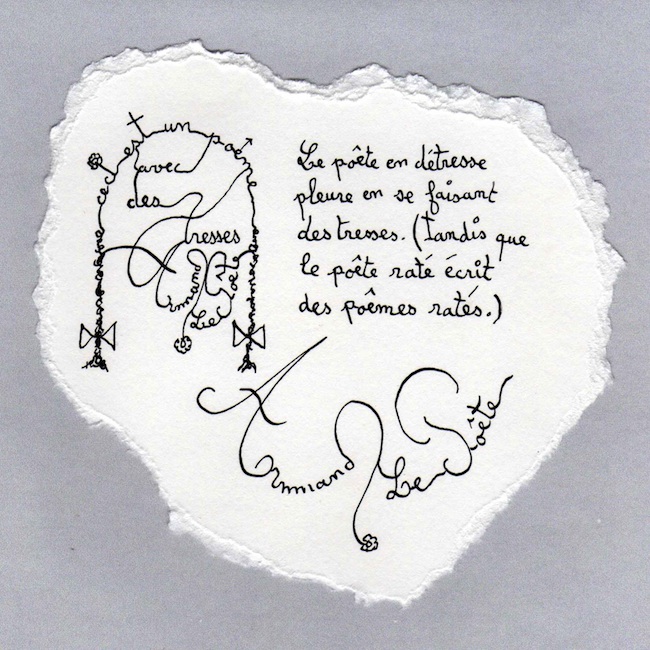 ceci est un poème
avec
des
tresses
Armand
Le Poête
Le poête en détresse
pleure en se faisant
des tresses. (Tandis que
le poête raté écrit
des poêmes ratés.)
Armand Le Poête